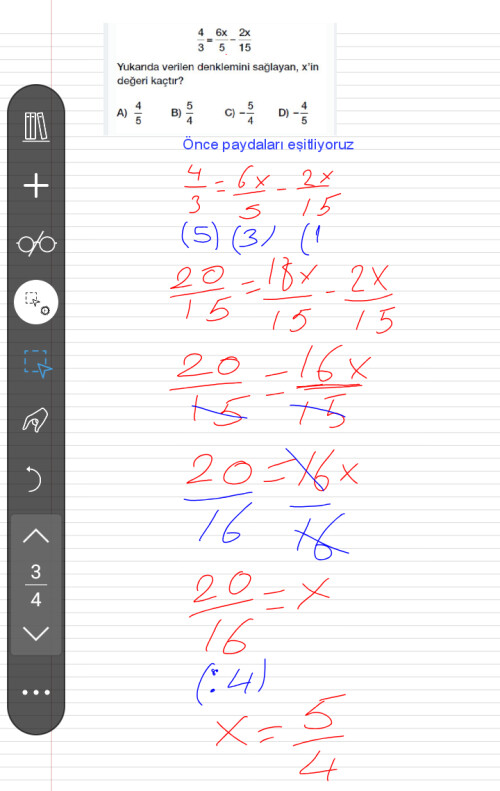 4/3 = 6x/5 - 2x/15
Yukarıda verilen denklemini sağlayan, x'in
değeri kaçtır?
A) 4/5 B) 5/4 C) -5/4 D) -4/5
Önce paydaları eşitliyoruz
4/3 = 6x/5 - 2x/15
(5) (3) (1
20/15 = 18x/15 - 2x/15
20/15 = 16x/15
20/16 = 16x/16
20/16 = x
(:4)
x = 5/4
3/4